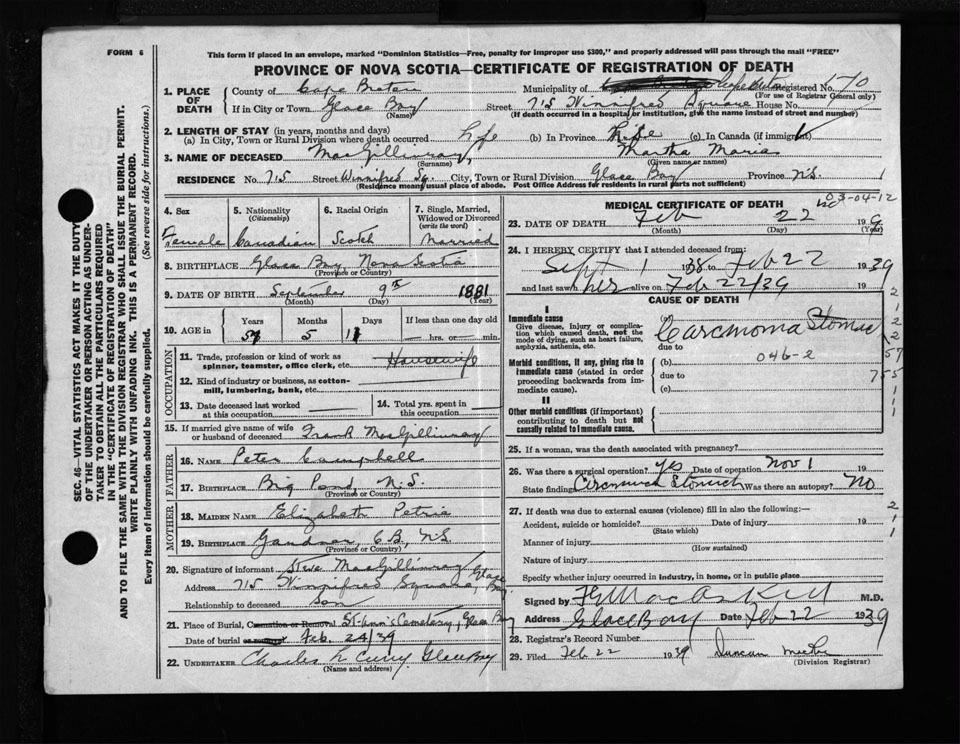 FORM 6
This form if placed in an envelope, marked "Dominion Statistics—Free, penalty for improper use $300," and properly addressed will pass through the mail "FREE"
PROVINCE OF NOVA SCOTIA—CERTIFICATE OF REGISTRATION OF DEATH
SEC. 46—VITAL STATISTICS ACT MAKES IT THE DUTY
OF THE UNDERTAKER OR PERSON ACTING AS UNDER-
TAKER TO OBTAIN ALL THE PARTICULARS REQUIRED
IN THE "CERTIFICATE OF REGISTRATION OF DEATH"
AND TO FILE THE SAME WITH THE DIVISION REGISTRAR WHO SHALL ISSUE THE BURIAL PERMIT.
WRITE PLAINLY WITH UNFADING INK. THIS IS A PERMANENT RECORD.
Every item of information should be carefully supplied. (See reverse side for instructions.)
1. PLACE OF DEATH County of Cape Breton Municipality of Cape Breton Registered No. 570
(For use of Registrar General only)
If in City or Town Glace Bay Street 715 Winnifred Square House No.
(Name) (If death occurred in a hospital or institution, give the name instead of street and number)
2. LENGTH OF STAY (in years, months and days)
(a) In City, Town or Rural Division where death occurred Life (b) In Province Life (c) In Canada (if immigrant)
3. NAME OF DECEASED MacGillivray, Martha Maria
(Surname) (Given name or names)
RESIDENCE No. 715 Street Winnifred Sq. City, Town or Rural Division Glace Bay Province N.S.
(Residence means usual place of abode. Post Office Address for residents in rural parts not sufficient)
4. Sex Female
5. Nationality (Citizenship) Canadian
6. Racial Origin Scotch
7. Single, Married, Widowed or Divorced (write the word) Married
8. BIRTHPLACE Glace Bay Nova Scotia
(Province or Country)
9. DATE OF BIRTH September 9th 1881
(Month) (Day) (Year)
10. AGE in Years 57 Months 5 Days 11 If less than one day old
hrs. or min.
OCCUPATION
11. Trade, profession or kind of work as spinner, teamster, office clerk, etc. Housewife
12. Kind of industry or business, as cotton-mill, lumbering, bank, etc.
13. Date deceased last worked at this occupation
14. Total yrs. spent in this occupation
15. If married give name of wife or husband of deceased Frank MacGillivray
FATHER
16. NAME Peter Campbell
17. BIRTHPLACE Big Pond, N.S.
(Province or Country)
MOTHER
18. MAIDEN NAME Elizabeth Petrie
19. BIRTHPLACE C.B., N.S.
(Province or Country)
20. Signature of informant Steve MacGillivray
Address 715 Winnifred Square, Glace Bay
Relationship to deceased Son
21. Place of Burial, Cremation or Removal St. Ann's Cemetery, Glace Bay
Date of burial Feb. 24/39
22. UNDERTAKER Charles L Curry Glace Bay
(Name and address)
MEDICAL CERTIFICATE OF DEATH
03-04-12
23. DATE OF DEATH Feb 22 19
(Month) (Day) (Year)
24. I HEREBY CERTIFY that I attended deceased from:
Sept 1 1938 to Feb 22 1939
and last saw her alive on Feb 22/39 19
CAUSE OF DEATH
I
Immediate cause
Give disease, injury or complication which caused death, not the mode of dying, such as heart failure, asphyxia, asthenia, etc.
(a) Carcinoma Stomach
due to
Morbid conditions, if any, giving rise to immediate cause (stated in order proceeding backwards from immediate cause).
(b) 046-2
due to
(c)
II
Other morbid conditions (if important) contributing to death but not causally related to immediate cause.
25. If a woman, was the death associated with pregnancy?
26. Was there a surgical operation? Yes Date of operation Nov 1 19
State findings Carcinoma Stomach Was there an autopsy? No
27. If death was due to external causes (violence) fill in also the following:—
Accident, suicide or homicide? Date of injury 19
(State which)
Manner of injury
(How sustained)
Nature of injury
Specify whether injury occurred in industry, in home, or in public place
Signed by MacAskill M.D.
Address Glace Bay Date Feb 22 1939
28. Registrar's Record Number
29. Filed Feb 22 1939 Duncan
(Division Registrar)